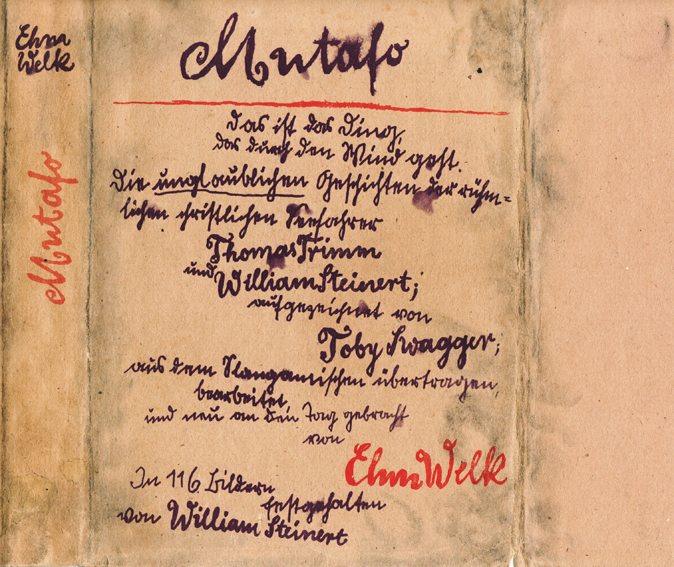 Ehm
Welk
Mutafo
Mutafo
das ist das Ding,
das durch den Wind geht.
Die unglaublichen Geschichten der rühm-
lichen christlichen Seefahrer
Thomas Trimm
und William Steinert;
aufgezeichnet von
Toby Swagger;
aus dem Slangamischen übertragen,
bearbeitet
und neu an den Tag gebracht
von
Ehm Welk
In 116 Bildern
festgehalten
von William Steinert